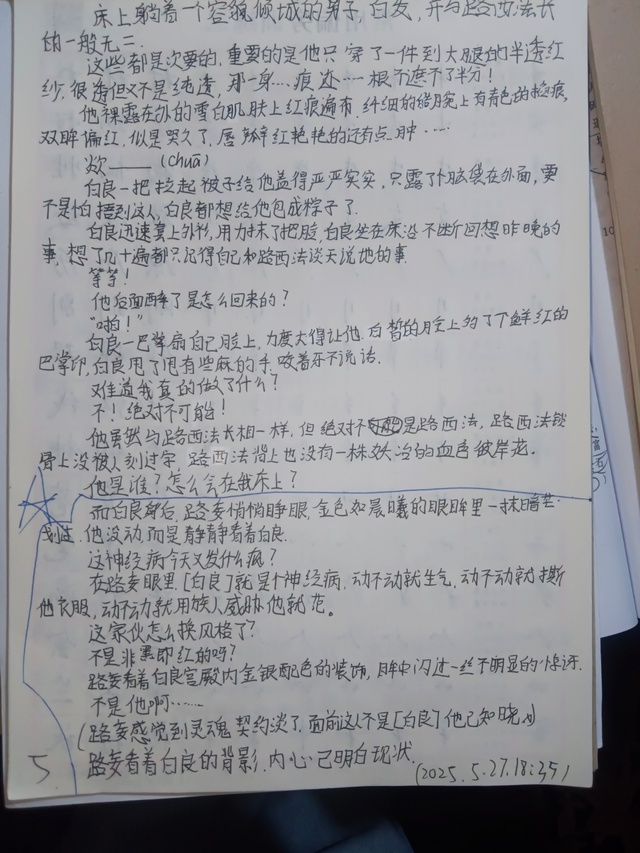 床上躺着一个容貌倾城的男子,白发,并与路西法长
的一般无二.
这些都是次要的,重要的是他只穿了一件到大腿的半透红
纱,很透但又不是纯透,那一身…痕迹…根本遮不了半分!
他裸露在外的雪白肌肤上红痕遍布,纤细的皓腕上有青色的掐痕,
双眸偏红,似是哭久了,唇瓣红艳艳的还有点肿……
欻——(chuā)
白良一把拉起被子给他盖得严严实实,只露了个脑袋在外面,要
不是怕捂到这人,白良都想给他包成粽子了.
白良迅速套上外衫,用力抹了把脸,白良坐在床沿不断回想昨晚的
事,想了几十遍都只记得自己和路西法谈天说地的事.
等等!
他后面醉了是怎么回来的?
“啪!”
白良一巴掌扇自己脸上,力度大得让他白皙的脸上多了个鲜红的
巴掌印,白良甩了甩有些麻的手,咬着牙不说话.
难道我真的做了什么?
不!绝对不可能!
他虽然与路西法长相一样,但绝对不是路西法,路西法锁
骨上没被人刻过字,路西法背上也没有一株妖冶的血色彼岸花.
他是谁?怎么会在我床上?
而白良身后,路妄悄悄睁眼,金色如晨曦的眼眸里一抹暗芒
划过.他没动,而是静静看着白良.
这神经病今天又发什么疯?
在路妄眼里,[白良]就是个神经病,动不动就生气,动不动就撕
他衣服,动不动就用族人威胁他就范。
这家伙怎么换风格了?
不是非黑即红的吗?
路妄看着白良宫殿内金银配色的装饰,眸中闪过一丝不明显的惊讶.
不是他啊……
(路妄感觉到灵魂契约淡了,面前这人不是[白良]他已知晓)
路妄看着白良的背影,内心已明白现状.
5
(2025.5.27.18:35)